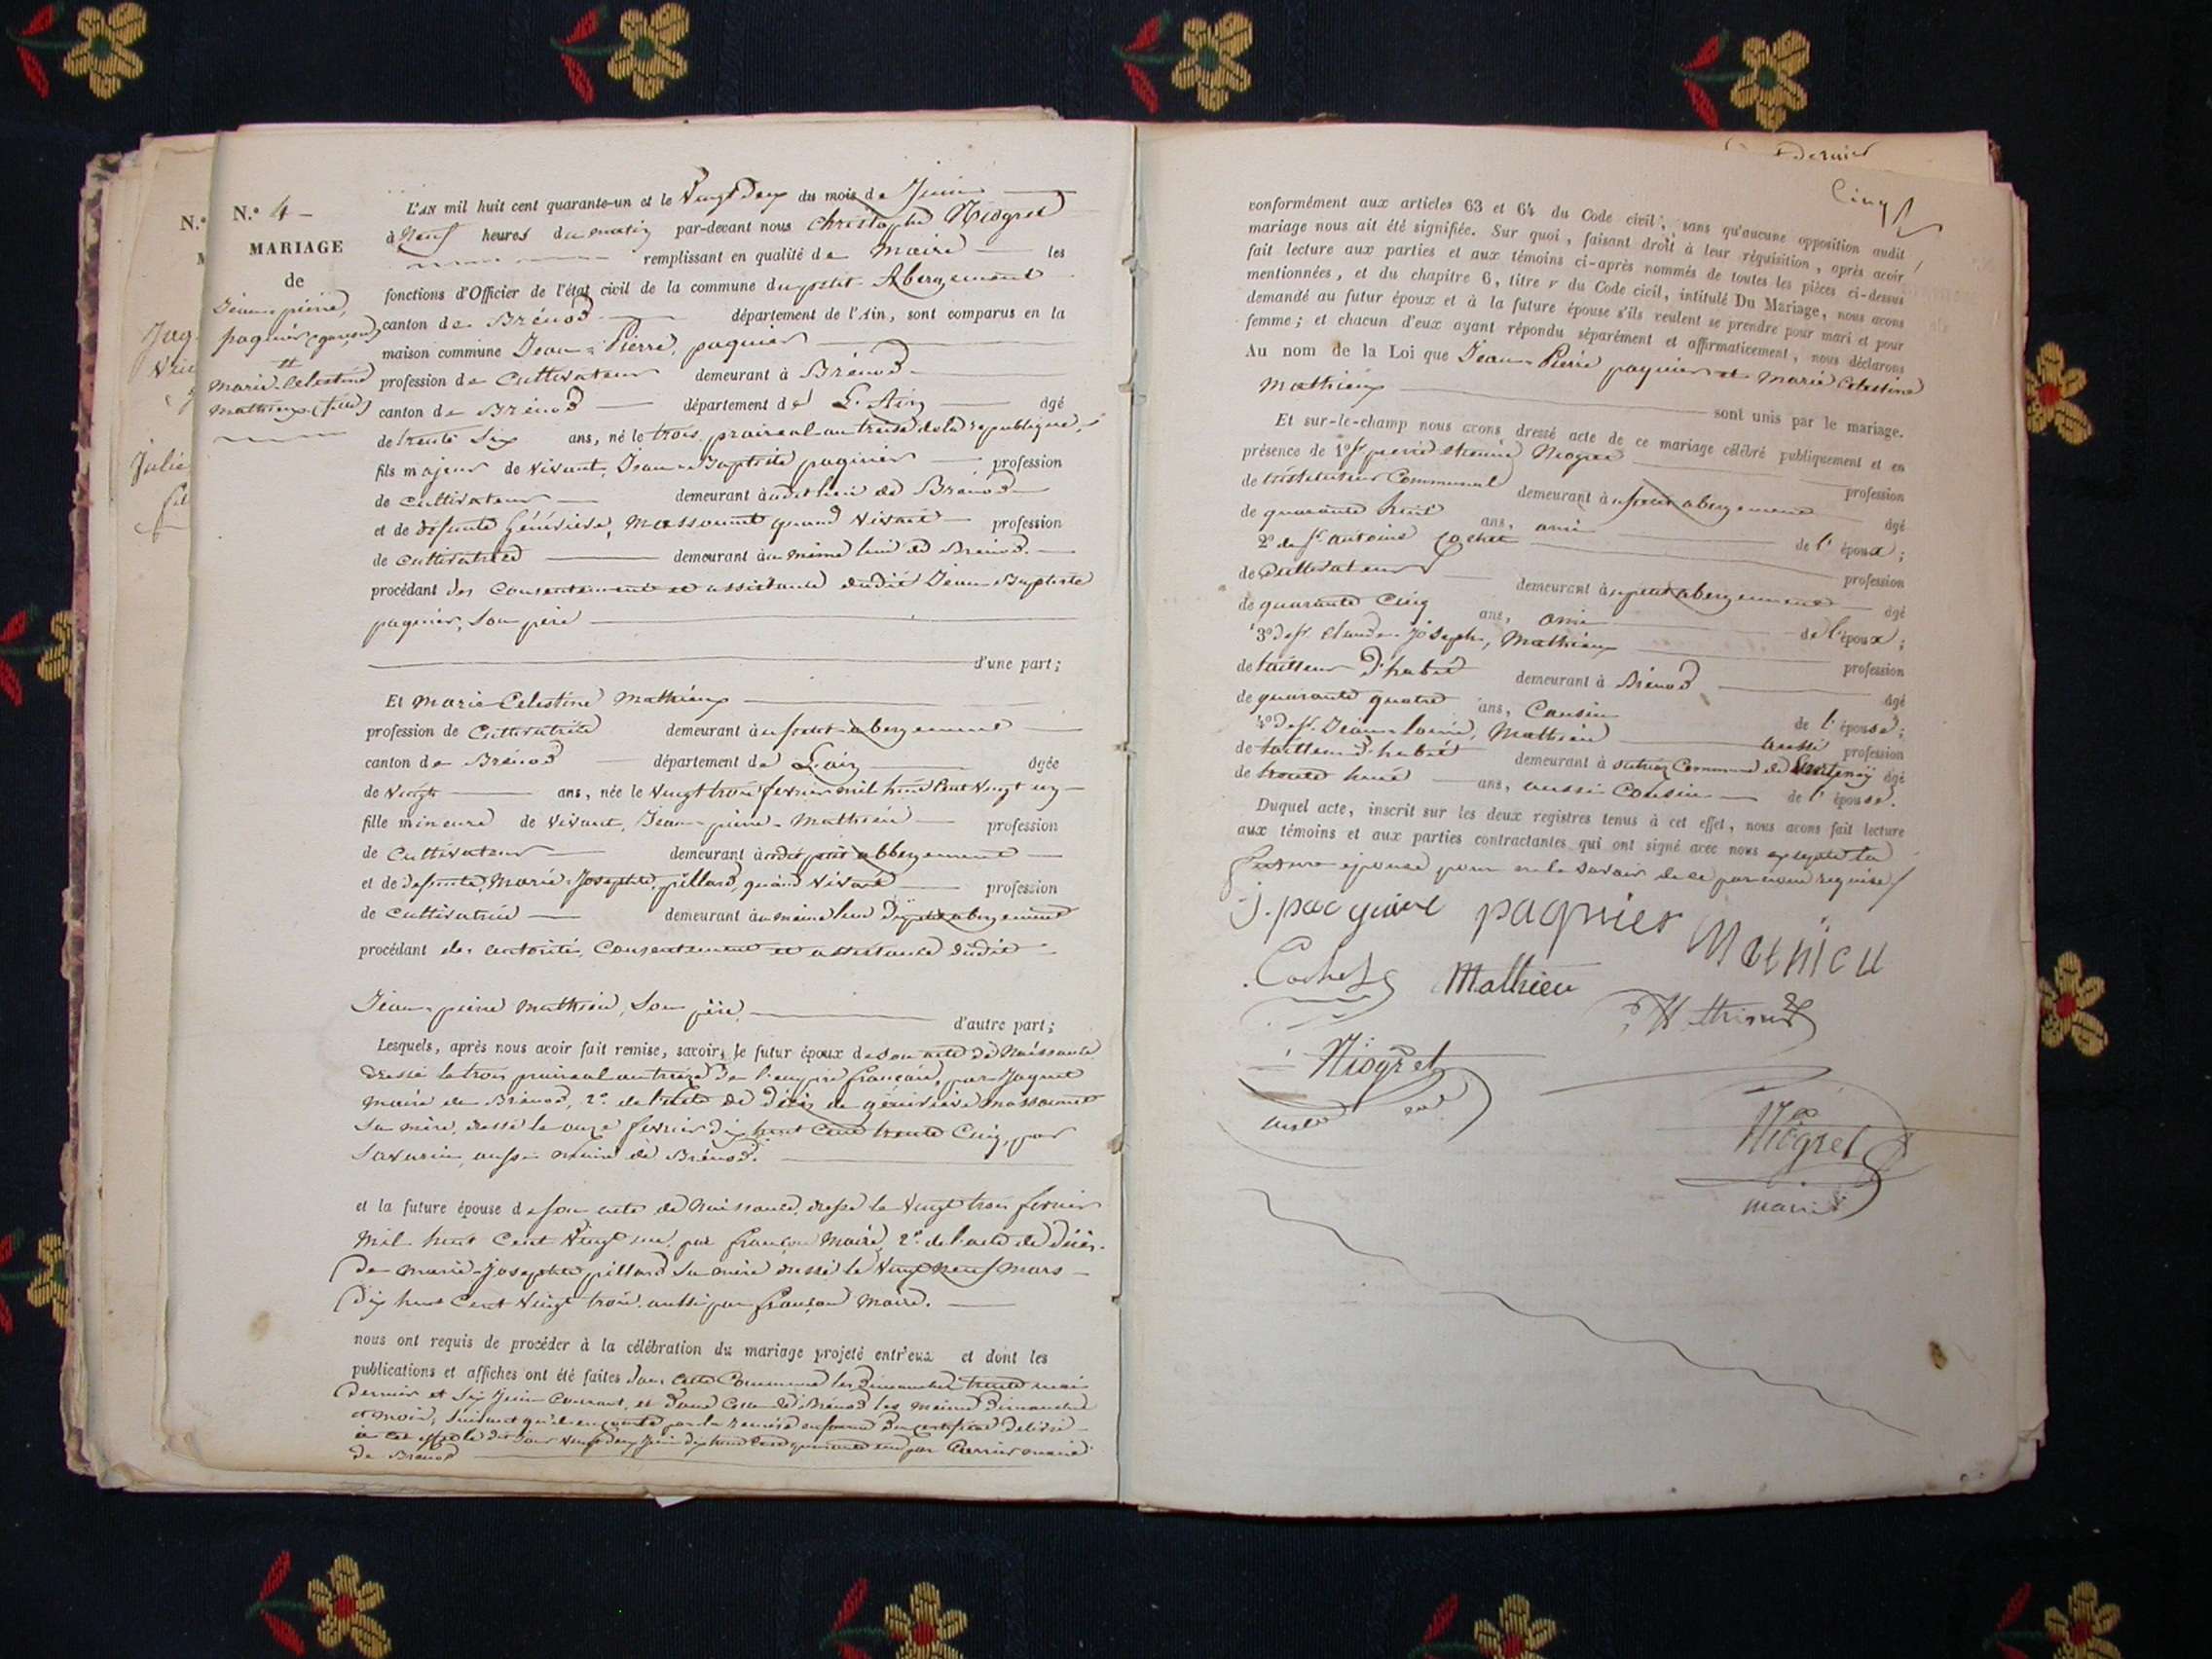 N.º 4
MARIAGE
de
Jean-pierre,
paquier (garçon)
et
marie-Celestine
Mathieux (fille)
L'AN mil huit cent quarante-un et le Vingt Deux du mois de Juin
à Neuf heures du matin par-devant nous Christophe Niogret
remplissant en qualité de maire les
fonctions d'Officier de l'état civil de la commune du petit Abergement
canton de Brénod département de l'Ain, sont comparus en la
maison commune Jean-Pierre, paquier
profession de Cultivateur demeurant à Brénod
canton de Brénod département de L'Ain âgé
de trente Six ans, né le trois praireal an treize de la republique,
fils majeur de vivant, Jean-Baptiste paquier profession
de cultivateur demeurant audit lieu de Brénod
et de défunte Généviève, Massonnet quand vivait profession
de cultivatrice demeurant au même lieu de Brénod.
procédant des Consentement et assistance dudit Jean-Baptiste
paquier, Son père
d'une part;
Et Marie-Celestine Mathieux
profession de Cultivatrice demeurant au petit-abergement
canton de Brénod département de L'ain âgée
de vingt ans, née le vingt trois fevrier mil huit Cent Vingt un
fille mineure de vivant, Jean-pierre-Mathieu profession
de Cultivateur demeurant audit petit abbergement
et de defunte, Marie-Josephte, pillard, quand vivait profession
de Cultivatrice demeurant au même lieu du petit abergement
procédant des autorité, Consentement et assistance dudit
Jean-pierre Mathieu, Son père,
d'autre part;
Lesquels, après nous avoir fait remise, savoir, le futur époux de Son acte de Naissance
dressé le trois praireal an treize de l'empire français, par Jagnet
maire de Brénod, 2.º de l'acte de décès de géneviève massonnet
Sa mère, dressé le onze fevrier dix huit Cent trente Cinq, par
Savarin, aussi maire de Brénod.
et la future épouse de son acte de Naissance, dressé le Vingt trois fevrier
Mil huit Cent Vingt un, par françon Maire, 2.º de l'acte de décès
de marie-Josephte pillard Sa mère dressé le Vingt neuf Mars
dix huit Cent Vingt trois, aussi par françon Maire.
nous ont requis de procéder à la célébration du mariage projeté entr'eux et dont les
publications et affiches ont été faites dans Cette Commune les Dimanches trente mai
Dernier et Six Juin Courant, et dans Celle de Brénod les meme Dimanches
et mois, Suivant qu'il en conste par la remise en forme du certificat délivré
à Cet effet le dit Jour Vingt deux Juin dix huit Cent quarante un par Carrier maire
de Brénod
Dernier
Cinq
conformément aux articles 63 et 64 du Code civil, sans qu'aucune opposition audit
mariage nous ait été signifiée. Sur quoi, faisant droit à leur réquisition, après avoir
fait lecture aux parties et aux témoins ci-après nommés de toutes les pièces ci-dessus
mentionnées, et du chapitre 6, titre v du Code civil, intitulé Du Mariage, nous avons
demandé au futur époux et à la future épouse s'ils veulent se prendre pour mari et pour
femme; et chacun d'eux ayant répondu séparément et affirmativement, nous déclarons
Au nom de la Loi que Jean-Pierre paquier et marie Celestine
Mathieux sont unis par le mariage.
Et sur-le-champ nous avons dressé acte de ce mariage célébré publiquement et en
présence de 1º Sr pierre Niogret profession
de instituteur Communal demeurant au petit abergement âgé
de quarante huit ans, ami de l'époux;
2º de Sr antoine Cochet profession
de Cultivateur demeurant au petit abergement âgé
de quarante Cinq ans, ami de l'époux;
3º de Sr. Claude-Joseph, Mathieux profession
de tailleur d'habit demeurant à Brénod âgé
de quarante quatre ans, Cousin de l'épouse;
4º de Sr. Jean-louis, Mathieu aussi profession
de tailleur d'habit demeurant à Sutrieu Commune de âgé
de trente huit ans, aussi Cousin de l'épouse.
Duquel acte, inscrit sur les deux registres tenus à cet effet, nous avons fait lecture
aux témoins et aux parties contractantes qui ont signé avec nous excepté la
future épouse pour ne le Savoir de ce par nous requise
j. pacquier paquier Mathieu
Cochet Mathieu
Niogret
Niogret
maire